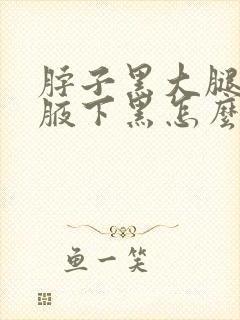 脖子黑大腿
腋下黑怎麼
鱼一笑